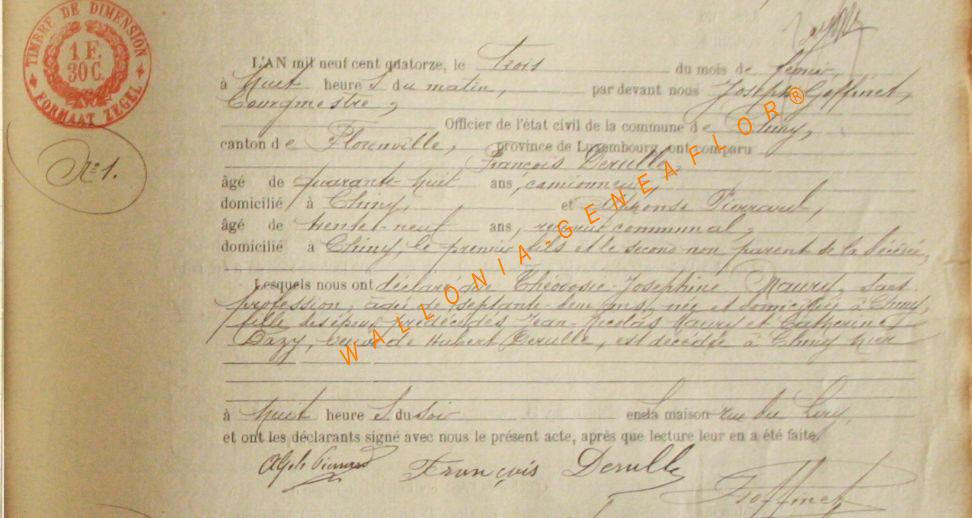 TIMBRE DE DIMENSION
1 F.
30 C.
FORMAAT ZEGEL
N° 1.
WALLONIA-GENEAFLOR®
L'AN mil neuf cent quatorze, le Trois du mois de février,
à huit heure s du matin, par devant nous Joseph Goffinet,
Bourgmestre,
Officier de l'état civil de la commune de Chiny,
canton de Florenville, province de Luxembourg, ont comparu
François Derulle,
âgé de quarante-huit ans, camionneur
domicilié à Chiny, et Alphonse Pierrard,
âgé de trente-neuf ans, communal,
domicilié à Chiny, le premier fils et le second non parent de la décédée,
Lesquels nous ont déclaré que Théodosie-Josephine Maury, sans
profession, âgée de septante-deux ans, née et domiciliée à Chiny,
fille des époux prédécédés Jean-Nicolas Maury et Catherine
Bazy, veuve de Hubert Derulle, est décédée à Chiny hier
à huit heure s du soir en sa maison rue du
et ont les déclarants signé avec nous le présent acte, après que lecture leur en a été faite.
Alph. Pierrard François Derulle
J. Goffinet